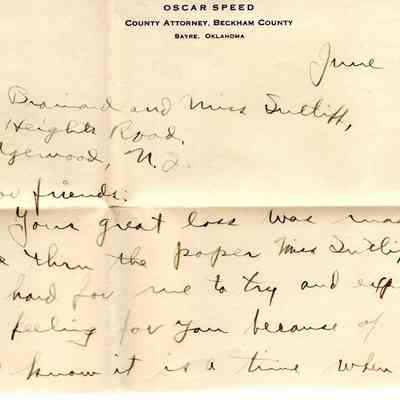 OSCAR SPEED
COUNTY ATTORNEY, BECKHAM COUNTY
SAYRE, OKLAHOMA
June
Brainard and Miss Sutliff,
Heights Road,
gewood, N.J.
friends:
Your great loss was
thru the paper Miss Sutli
hard for me to try and exp
feeling for you because of
know it is a time when